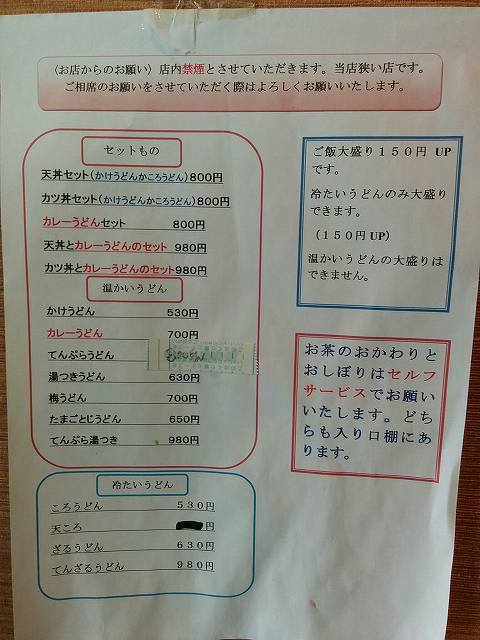 〈お店からのお願い〉店内禁煙とさせていただきます。当店狭い店です。
ご相席のお願いをさせていただく際はよろしくお願いいたします。
セットもの
天丼セット(かけうどんかころうどん)800円
カツ丼セット(かけうどんかころうどん)800円
カレーうどんセット 800円
天丼とカレーうどんのセット 980円
カツ丼とカレーうどんのセット980円
温かいうどん
かけうどん 530円
カレーうどん 700円
てんぷらうどん
湯つきうどん 630円
梅うどん 700円
たまごとじうどん 650円
てんぷら湯つき 980円
冷たいうどん
ころうどん 530円
天ころ 円
ざるうどん 630円
てんざるうどん 980円
ご飯大盛り150円 UP
です。
冷たいうどんのみ大盛り
できます。
(150円UP)
温かいうどんの大盛りは
できません。
お茶のおかわりと
おしぼりはセルフ
サービスでお願い
いたします。どち
らも入り口棚にあ
ります。